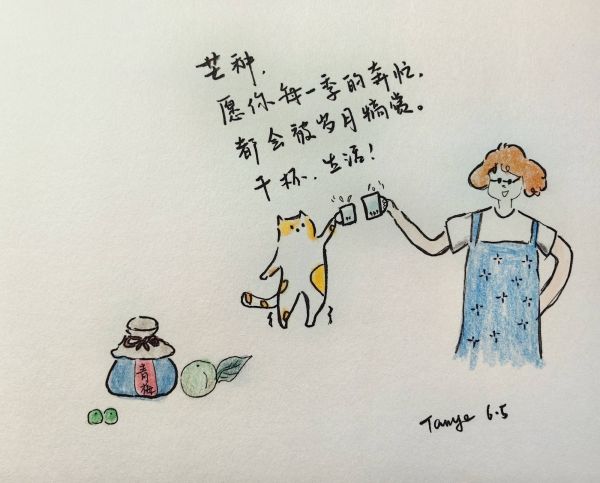 芒种，
愿你每一季的奔忙，
都会被岁月犒赏。
干杯、生活！
青梅
Tanye 6.5